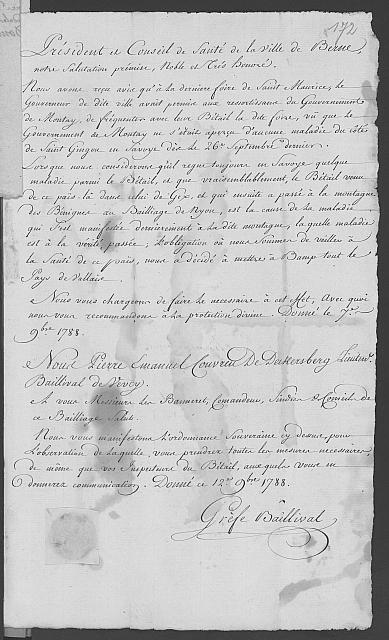 172
Président et Conseil de Santé de la Ville de Berne,
notre Salutation prémise, Noble et Trés Honoré.
Nous avons reçu avis qu'à la derniére foire de Saint Maurice, le
Gouverneur de dite ville avait permis aux ressortissans du Gouvernement
de Montay, de fréquenter avec leur Bétail la dite foire, vû que le
Gouvernement de Montay ne s'était aperçu d'aucune maladie du côté
de Saint Gingou en Savoye dès le 26e Septembre dernier.
Lorsque nous considerons qu'il regne toujours en Savoye quelque
maladie parmi le Bétail, et que vraisemblablement, le Bétail venu
de ce pais là dans celui de Gex, et qui ensuite a passé à la montagne
des Bévignes au Bailliage de Nyon, est la cause de la maladie
qui s'est manifestée dernièrement à la dite montagne, laquelle maladie
est à la vérité passée; L'obligation où nous sommes de veiller à
la Santé de ce pais, nous a décidé à mettre à Bamp tout le
Pays de Vallais.
Nous vous chargeons de faire le necessaire à cet effet, Avec quoi
nous vous recommandons à la protection divine. Donné le 7e
9bre 1788.
Nous Pierre Emanuel Couvreu De Deckersberg Lieutent
Baillival de Vevey.
A vous Messieurs les Banneret, Comandeur, Sindics & Conseils de
ce Bailliage Salut.
Nous vous manifestons l'ordonnance Souveraine cy dessus, pour
l'observation de laquelle, vous prendrez toutes les mesures necessaires,
de même que vos Inspecteurs du Bétail, auxquels vous en
donnerez communication. Donné ce 12e 9bre 1788.
Gréfe Baillival